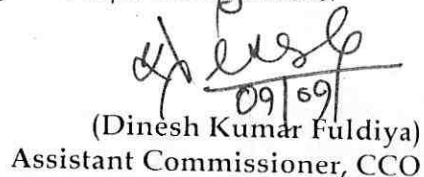 09/09
(Dinesh Kumar Fuldiya)
Assistant Commissioner, CCO